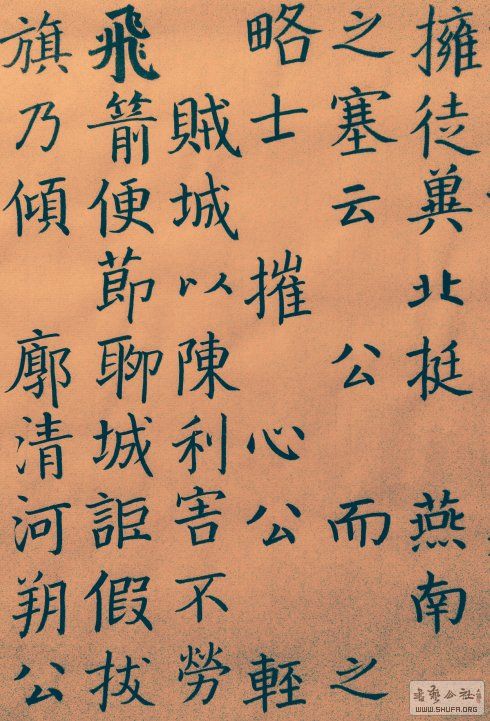 擁徒冀北挺燕南
之塞云公而之
略士摧心公輕
賊城以陳利害不勞
飛箭便節聊城詎假拔
旗乃傾廓清河朔公
WWW.SHUFA.ORG